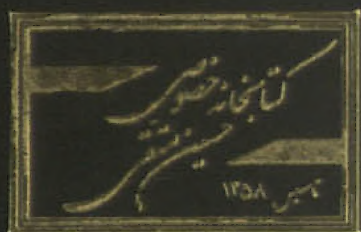 کتابخانه خصوصی
حسین متقی
تأسیس ۱۳۵۸